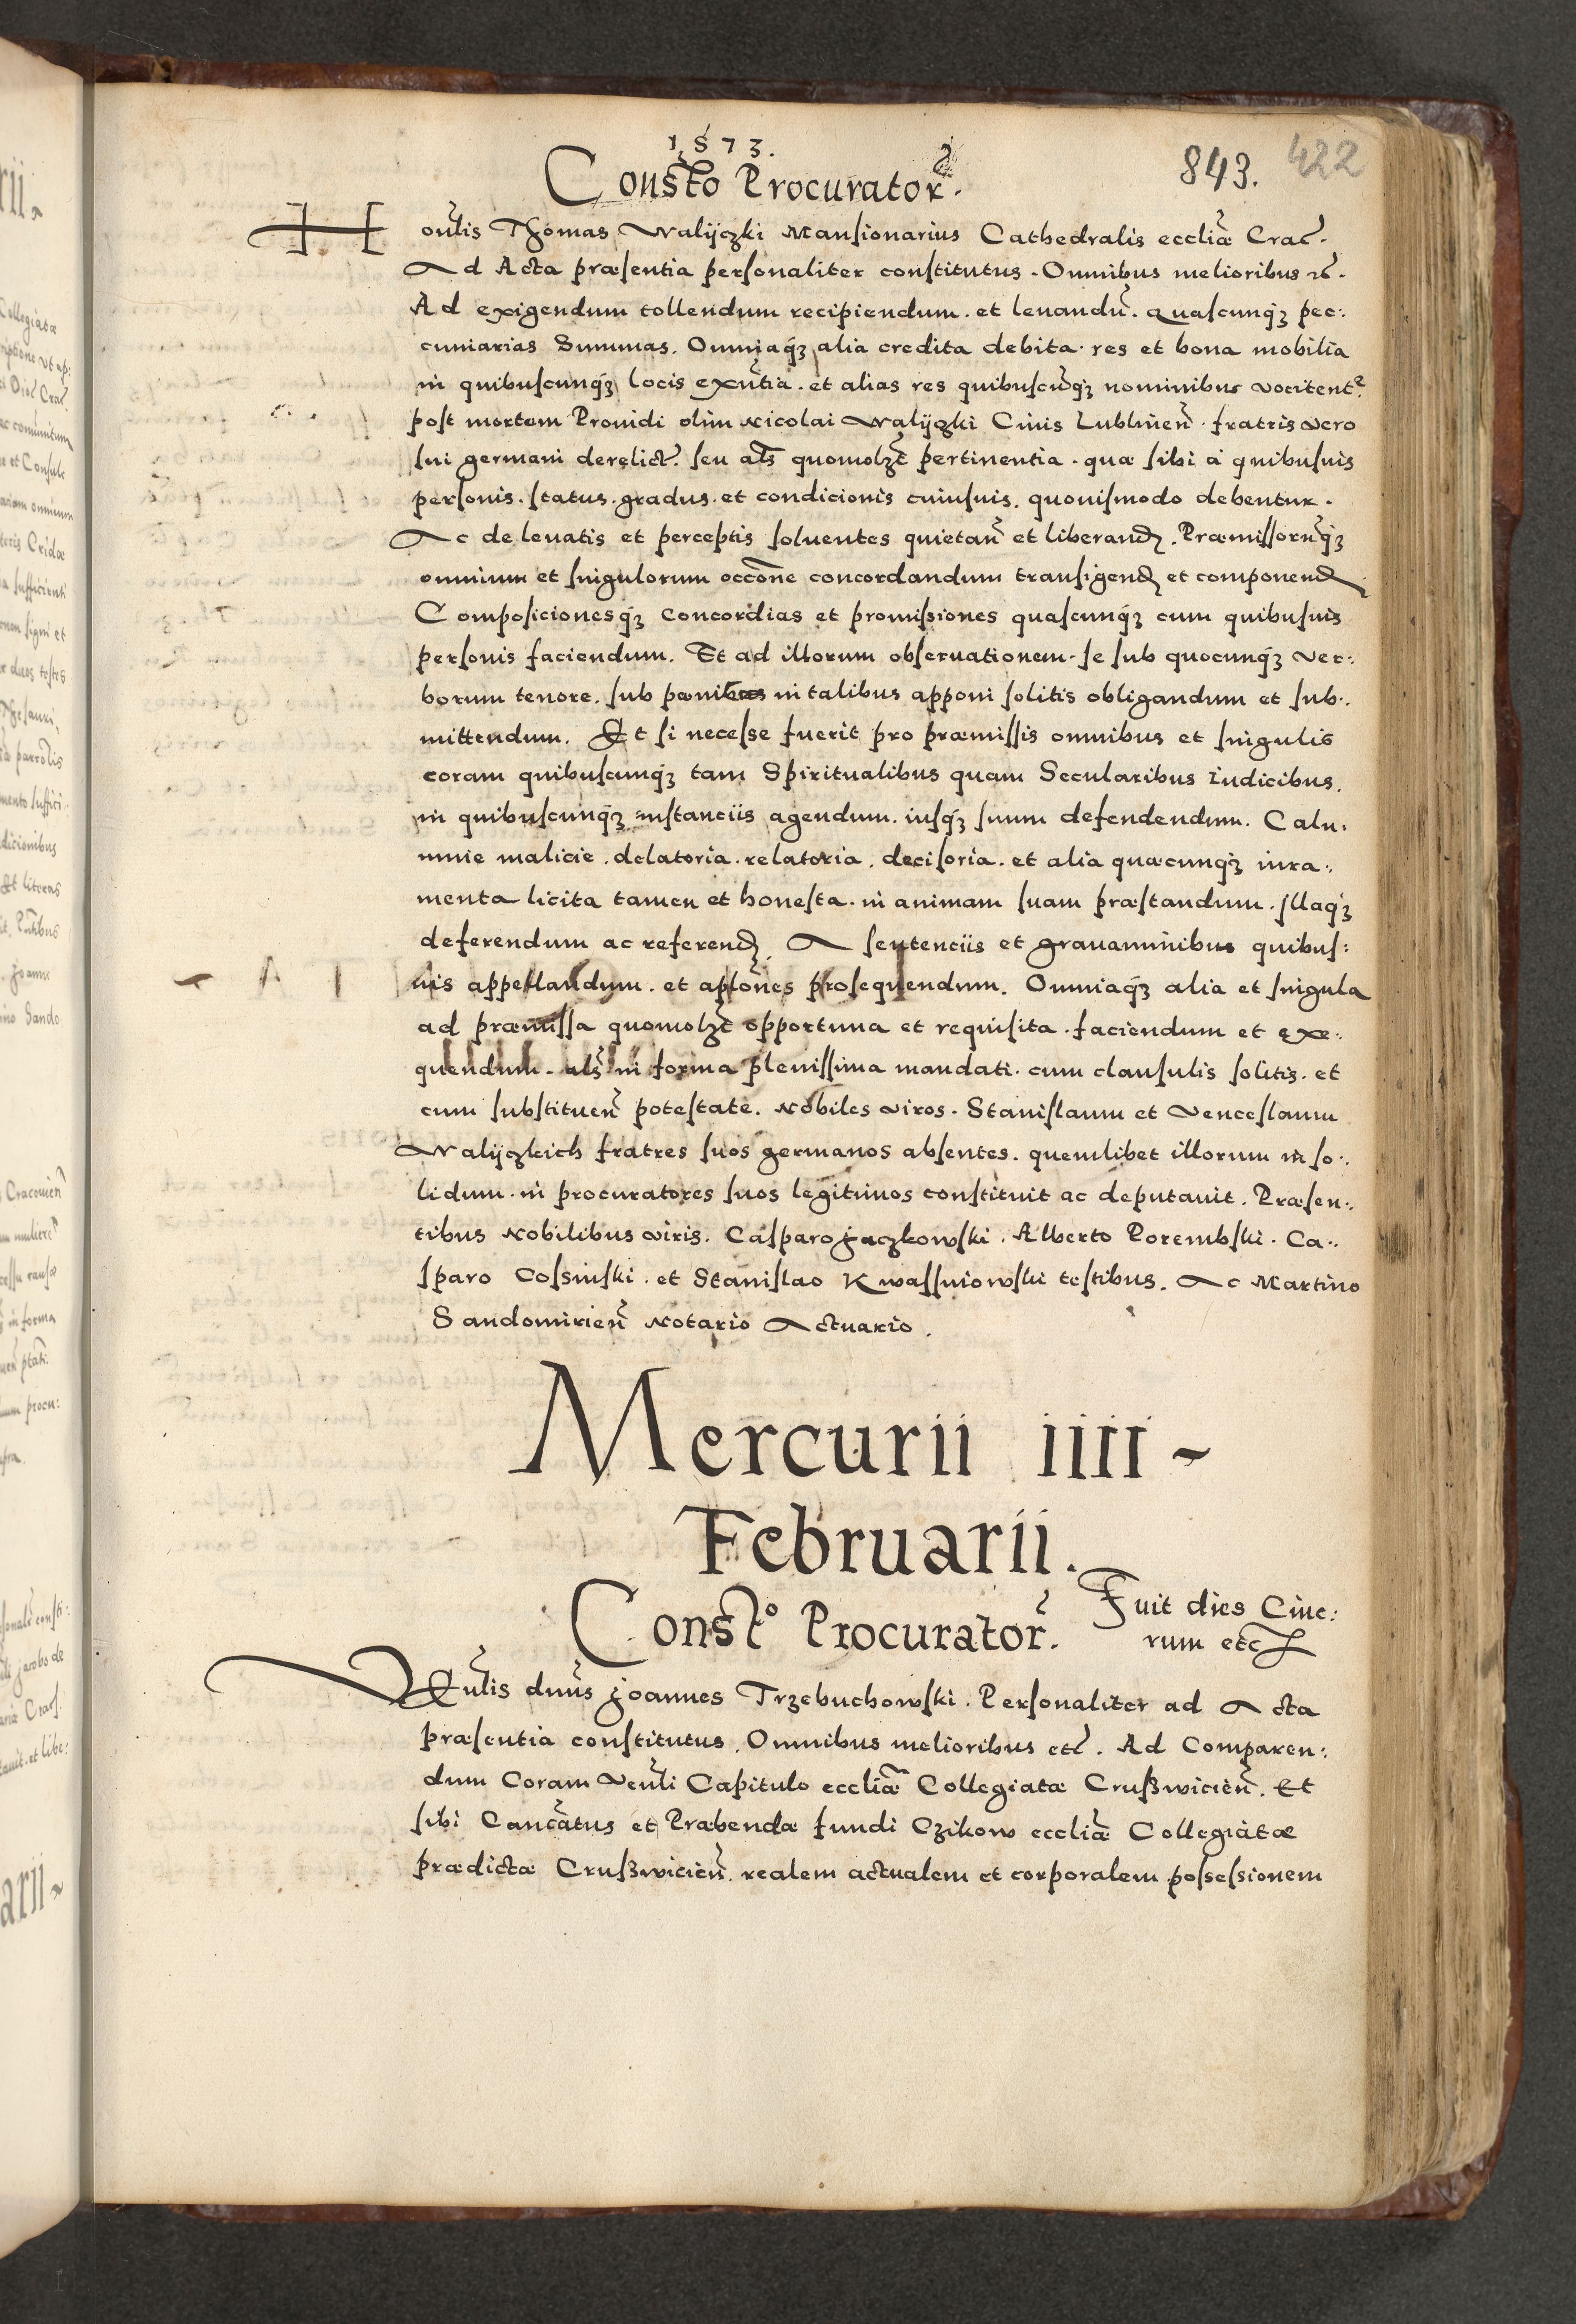 1573.
843. 422
Consto Procurator.
Honlis Thomas Walijczki Mansionarius Cathedralis eccliæ Crac.
Ad Acta præsentia personaliter constitutus. Omnibus melioribus etc.
Ad exigendum tollendum recipiendum. et leuandu. Quascunq3 pec:
cuniarias Summas. Omniaq3 alia credita debita. res et bona mobilia
in quibuscunq3 locis exntia. et alias res quibuscuq3 nominibus vocitent.
post mortem Prouidi olim Nicolai Walijczki Ciuis Lublinen. fratris vero
sui germani derelict. seu als quomolzt pertinentia. quæ sibi à quibusuis
personis. status. gradus. et condicionis cuiusuis. quouismodo debentur.
Ac de leuatis et perceptis soluentes quietan et liberand. Præmissornq3
omnium et singulorum occone concordandum transigend et componend
Composicionesq3 concordias et promissiones quascunq3 cum quibusuis
personis faciendum. Et ad illorum obseruationem. se sub quocunq3 ver:
borum tenore. sub pœnis in talibus apponi solitis obligandum et sub:
mittendum. Et si necesse fuerit pro præmissis omnibus et singulis
coram quibuscunq3 tam Spiritualibus quam Secularibus Iudicibus.
in quibuscunq3 instanciis agendum. iusq3 suum defendendum. Calu:
mnie malicie. delatoria. relatoria. decisoria. et alia quæcunq3 iura:
menta licita tamen et honesta. in animam suam præstandum. Illaq3
deferendum ac referend. A sentenciis et grauaminibus quibus:
uis appellandum. et aplones prosequendum. Omniaq3 alia et singula
ad præmissa quomolzt opportuna et requisita. faciendum et exe:
quendum. als in forma plenissima mandati. cum clausulis solitis. et
cum substituen potestate. Nobiles viros. Stanislaum et Venceslaum
Walijczkich fratres suos germanos absentes. quemlibet illorum in so:
lidum. in procuratores suos legitimos constituit ac deputauit. Præsen:
tibus Nobilibus viris. Casparo Jaczkowski. Alberto Porembski. Ca:
sparo Cossinski. et Stanislao Kwassniowski testibus. Ac Martino
Sandomirien Notario Actuario.
Mercurii iiii
Februarii.
Consto Procurator.
Fuit dies Cine:
rum etc
Venlis dnus Joannes Trzebuchowski. Personaliter ad Acta
præsentia constitutus. Omnibus melioribus etc. Ad Comparen:
dum Coram Venli Capitulo eccliæ Collegiatæ Crußwicien. Et
sibi Cancatus et Præbendæ fundi Czikow eccliæ Collegiatæ
prædictæ Crußwicien. realem actualem et corporalem possessionem